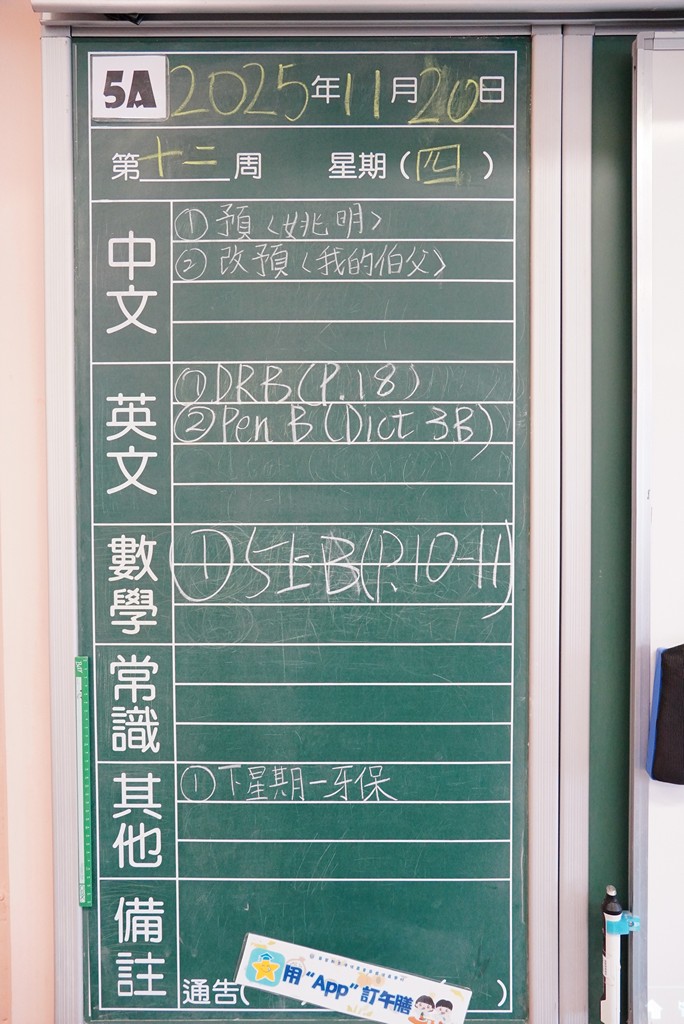 5A 2025年11月20日
第十二周 星期(四)
中文
①預〈姚明〉
②改預〈我的伯父〉
英文
①DRB(P.18)
②Pen B(Dict 3B)
數學
①5上B(P.10-11)
常識
其他
①下星期一牙保
備註
通告( )
用“App”訂午膳